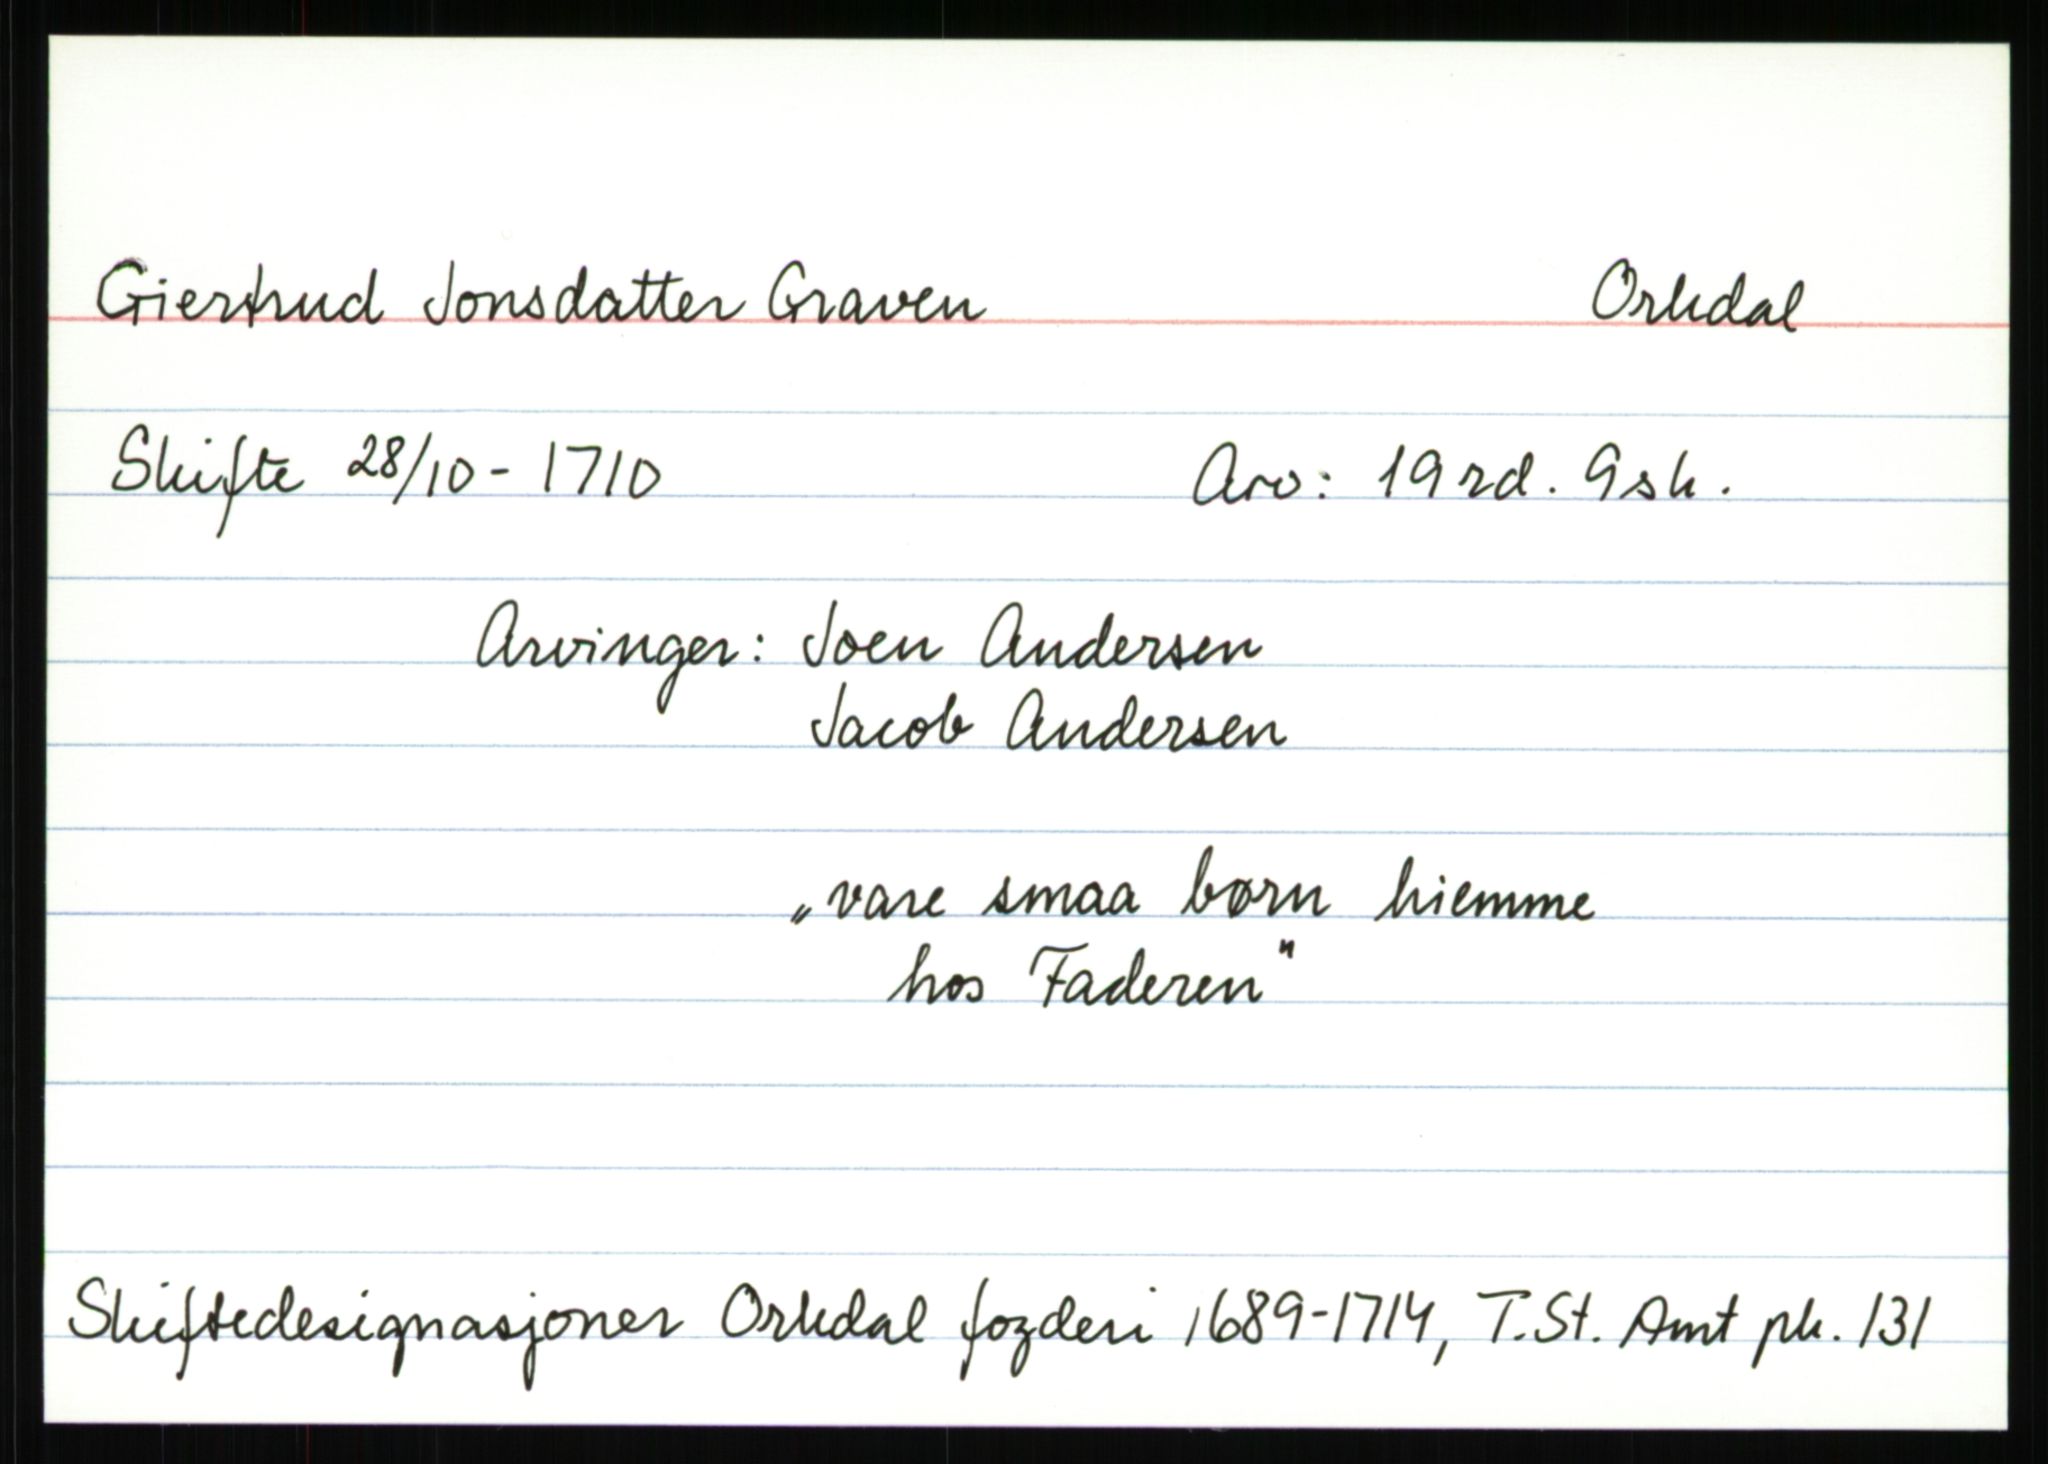 Giertrud Jonsdatter Graven Orkdal
Skifte 28/10 - 1710 Arv: 19 rd. 9 sk.
Arvinger: Joen Andersen
Jacob Andersen
„vare smaa børn hiemme
hos Faderen"
Skiftedesignasjoner Orkdal fogderi 1689-1714, T.St. Amt pk. 131